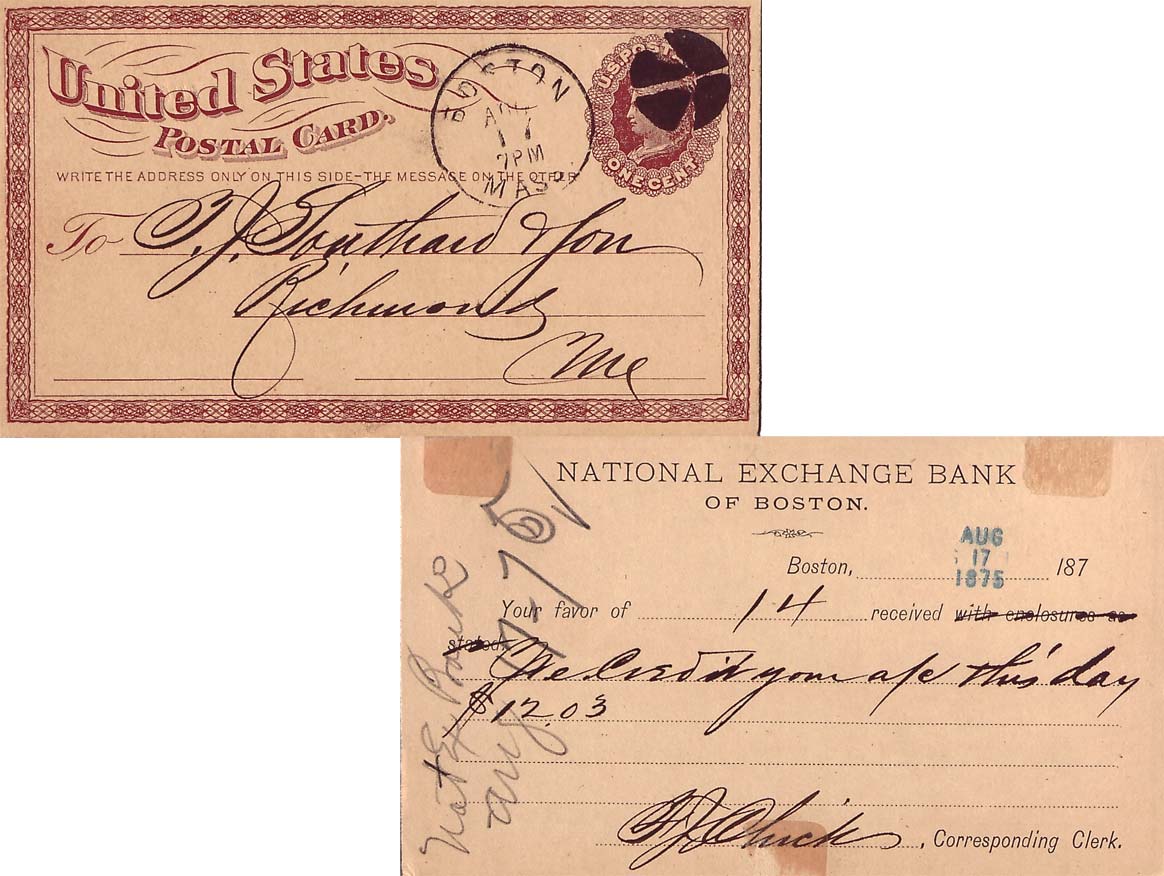 United States
POSTAL CARD.
BOSTON
AUG
17
7PM
MASS
U.S. POST
ONE CENT
WRITE THE ADDRESS ONLY ON THIS SIDE-THE MESSAGE ON THE OTHER
To T. J. Southard & Son
Richmond
Me
NATIONAL EXCHANGE BANK
OF BOSTON.
AUG
17
1875
Boston, 187
Your favor of 14 received with enclosures as
stated.
We Credit your a/c this day
$12.03
, Corresponding Clerk.
Nat Ex Bank
Aug 17-75